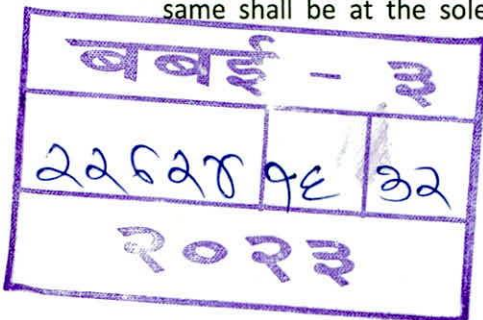 same shall be at the sole
बबई - ३
२२६२४ १६ ३२
२०२३